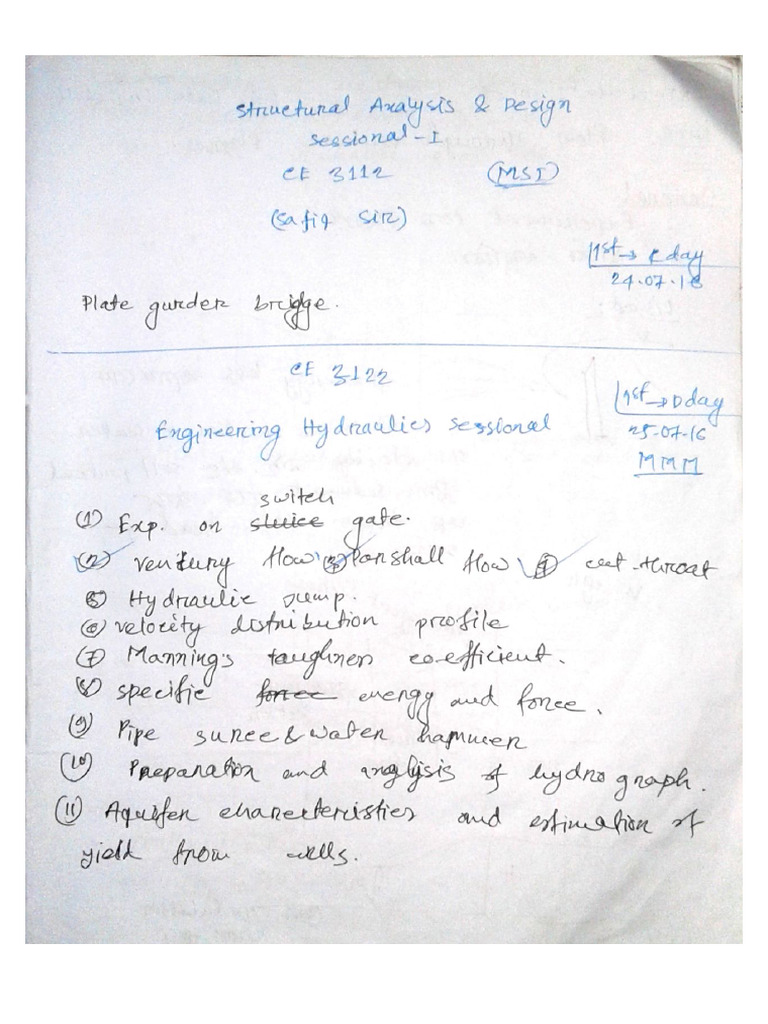 Structural Analysis & Design
Sessional-I
CE 3112 (MSI)
(Safiq Sir)
1st → E day
24.07.16
Plate gurder bridge.
CE 3122
1st → D day
Engineering Hydraulics sessional
25.07.16
MMM
switch
(1) Exp. on sluice gate.
(2) ventury flow (3) Parshall flow (4) cut-throat
(5) Hydraulic Jump.
(6) velocity distribution profile
(7) Manning's roughness co-efficient.
(8) specific force energy and force.
(9) Pipe surce & water hammer
(10) Preparation and analysis of hydrograph.
(11) Aquifer characteristics and estimation of
yield from wells.